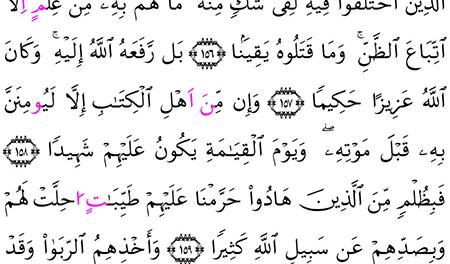 الَّذِينَ اَخْتَلَفُوا فِيهِ لَفِى شَكٍّ مِّنْهُ مَا لَهُم بِهِۦ مِنْ عِلْمٍ اِلَّا
اَتِّبَاعَ اَلظَّنِّ وَمَا قَتَلُوهُ يَقِينًا ١٥٦ بَل رَّفَعَهُ اُللَّهُ إِلَيْهِ وَكَانَ
اَللَّهُ عَزِيزًا حَكِيمًا ١٥٧ وَإِن مِّنَ اَهْلِ اِلْكِتَٰبِ إِلَّا لَيُومِنَنَّ
بِهِۦ قَبْلَ مَوْتِهِۦ وَيَوْمَ اَلْقِيَٰمَةِ يَكُونُ عَلَيْهِمْ شَهِيدًا ١٥٨
فَبِظُلْمٍ مِّنَ اَلَّذِينَ هَادُوا حَرَّمْنَا عَلَيْهِمْ طَيِّبَٰتٍ احِلَّتْ لَهُمْ
وَبِصَدِّهِمْ عَن سَبِيلِ اِللَّهِ كَثِيرًا ١٥٩ وَأَخْذِهِمُ اُلرِّبَوٰا وَقَدْ